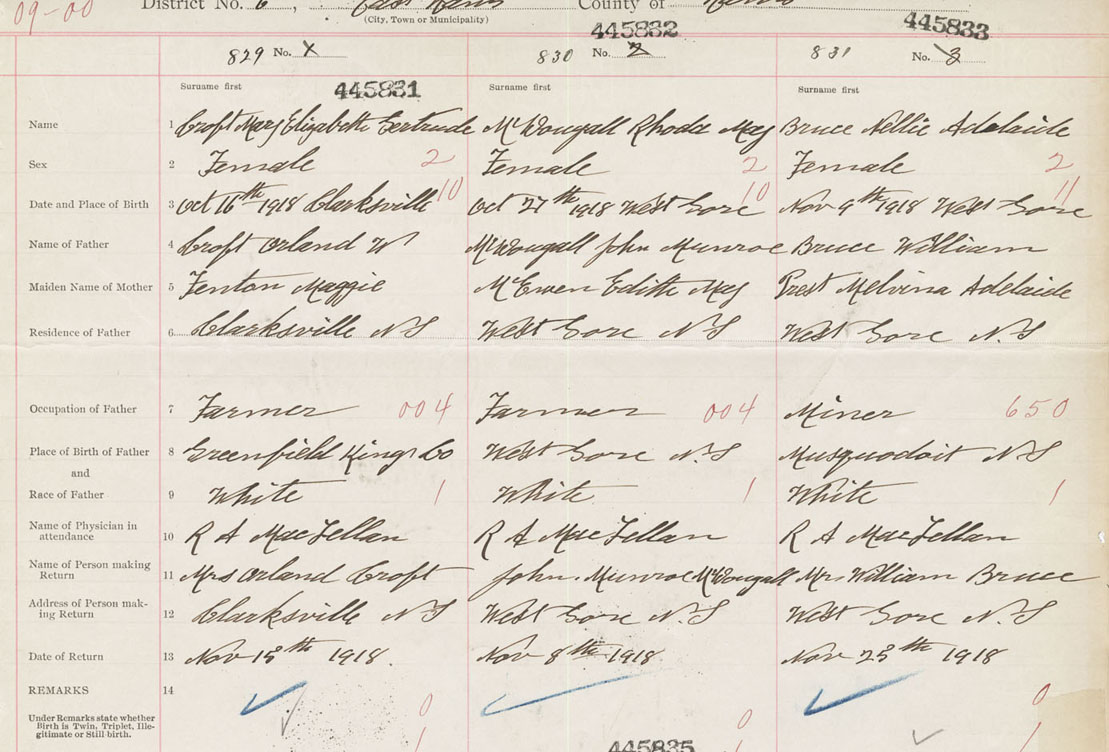 09-00 District No. 6, East Hants County of Hants
(City, Town or Municipality)
445832 445833
829 No. 1 830 No. 2 831 No. 3
Surname first 445831 Surname first Surname first
Name 1 Croft Mary Elizabeth Gertrude McDougall Rhoda May Bruce Nellie Adelaide
Sex 2 Female 2 Female 2 Female 2
10 10 11
Date and Place of Birth 3 Oct 16th 1918 Clarksville Oct 27th 1918 West Gore Nov 9th 1918 West Gore
Name of Father 4 Croft Orland W McDougall John Munroe Bruce William
Maiden Name of Mother 5 Fenton Maggie McEwen Edith May Prest Melvina Adelaide
Residence of Father 6 Clarksville N S West Gore N S West Gore N.S
Occupation of Father 7 Farmer 004 Farmer 004 Miner 650
Place of Birth of Father 8 Greenfield Kings Co West Gore N.S Musquodoit N S
and
Race of Father 9 White 1 White 1 White 1
Name of Physician in
attendance 10 R A MacLellan R A MacLellan R A MacLellan
Name of Person making
Return 11 Mrs Orland Croft John Munroe McDougall Mrs William Bruce
Address of Person mak-
ing Return 12 Clarksville N S West Gore N.S West Gore N.S
Date of Return 13 Nov 1918. Nov 8th 1918 Nov 1918
REMARKS 14
0 0 0
Under Remarks state whether
Birth is Twin, Triplet, Ille-
gitimate or Still-birth.
1 1 1
445835